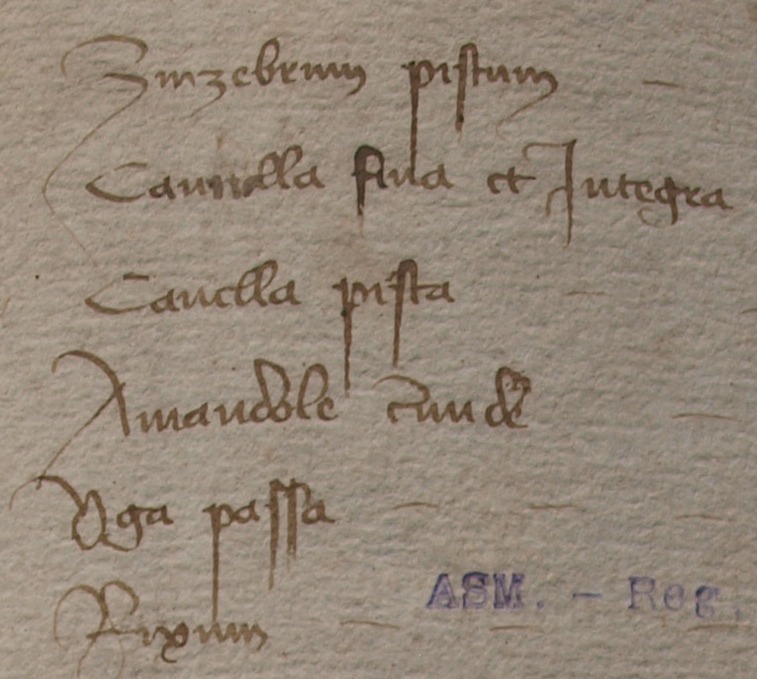 Zinzebrum pistum
Cannella fina et Integra
Canella pista
Amandole
Uga passa
Rixum
ASM. - Reg.